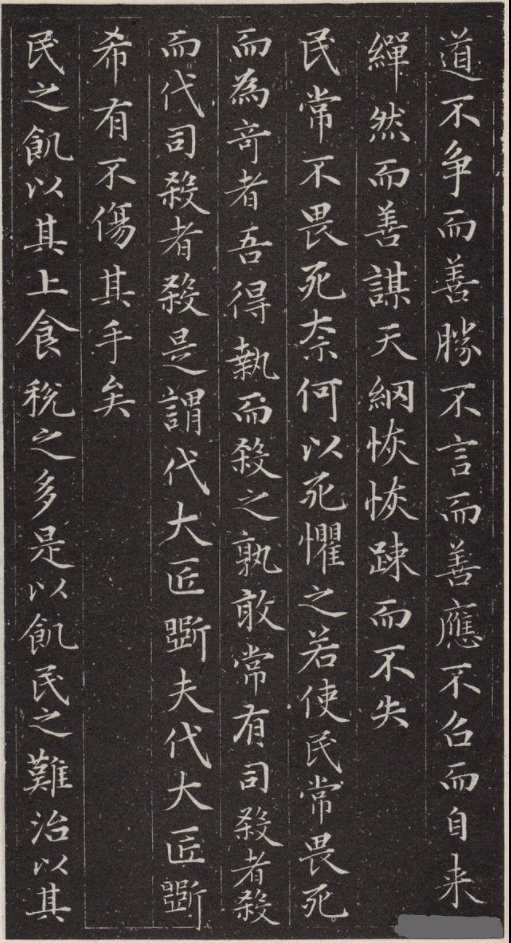 道不争而善勝不言而善應不召而自来
繟然而善謀天網恢恢踈而不失
民常不畏死奈何以死懼之若使民常畏死
而為奇者吾得執而殺之孰敢常有司殺者殺
而代司殺者殺是謂代大匠斲夫代大匠斲
希有不傷其手矣
民之飢以其上食稅之多是以飢民之難治以其